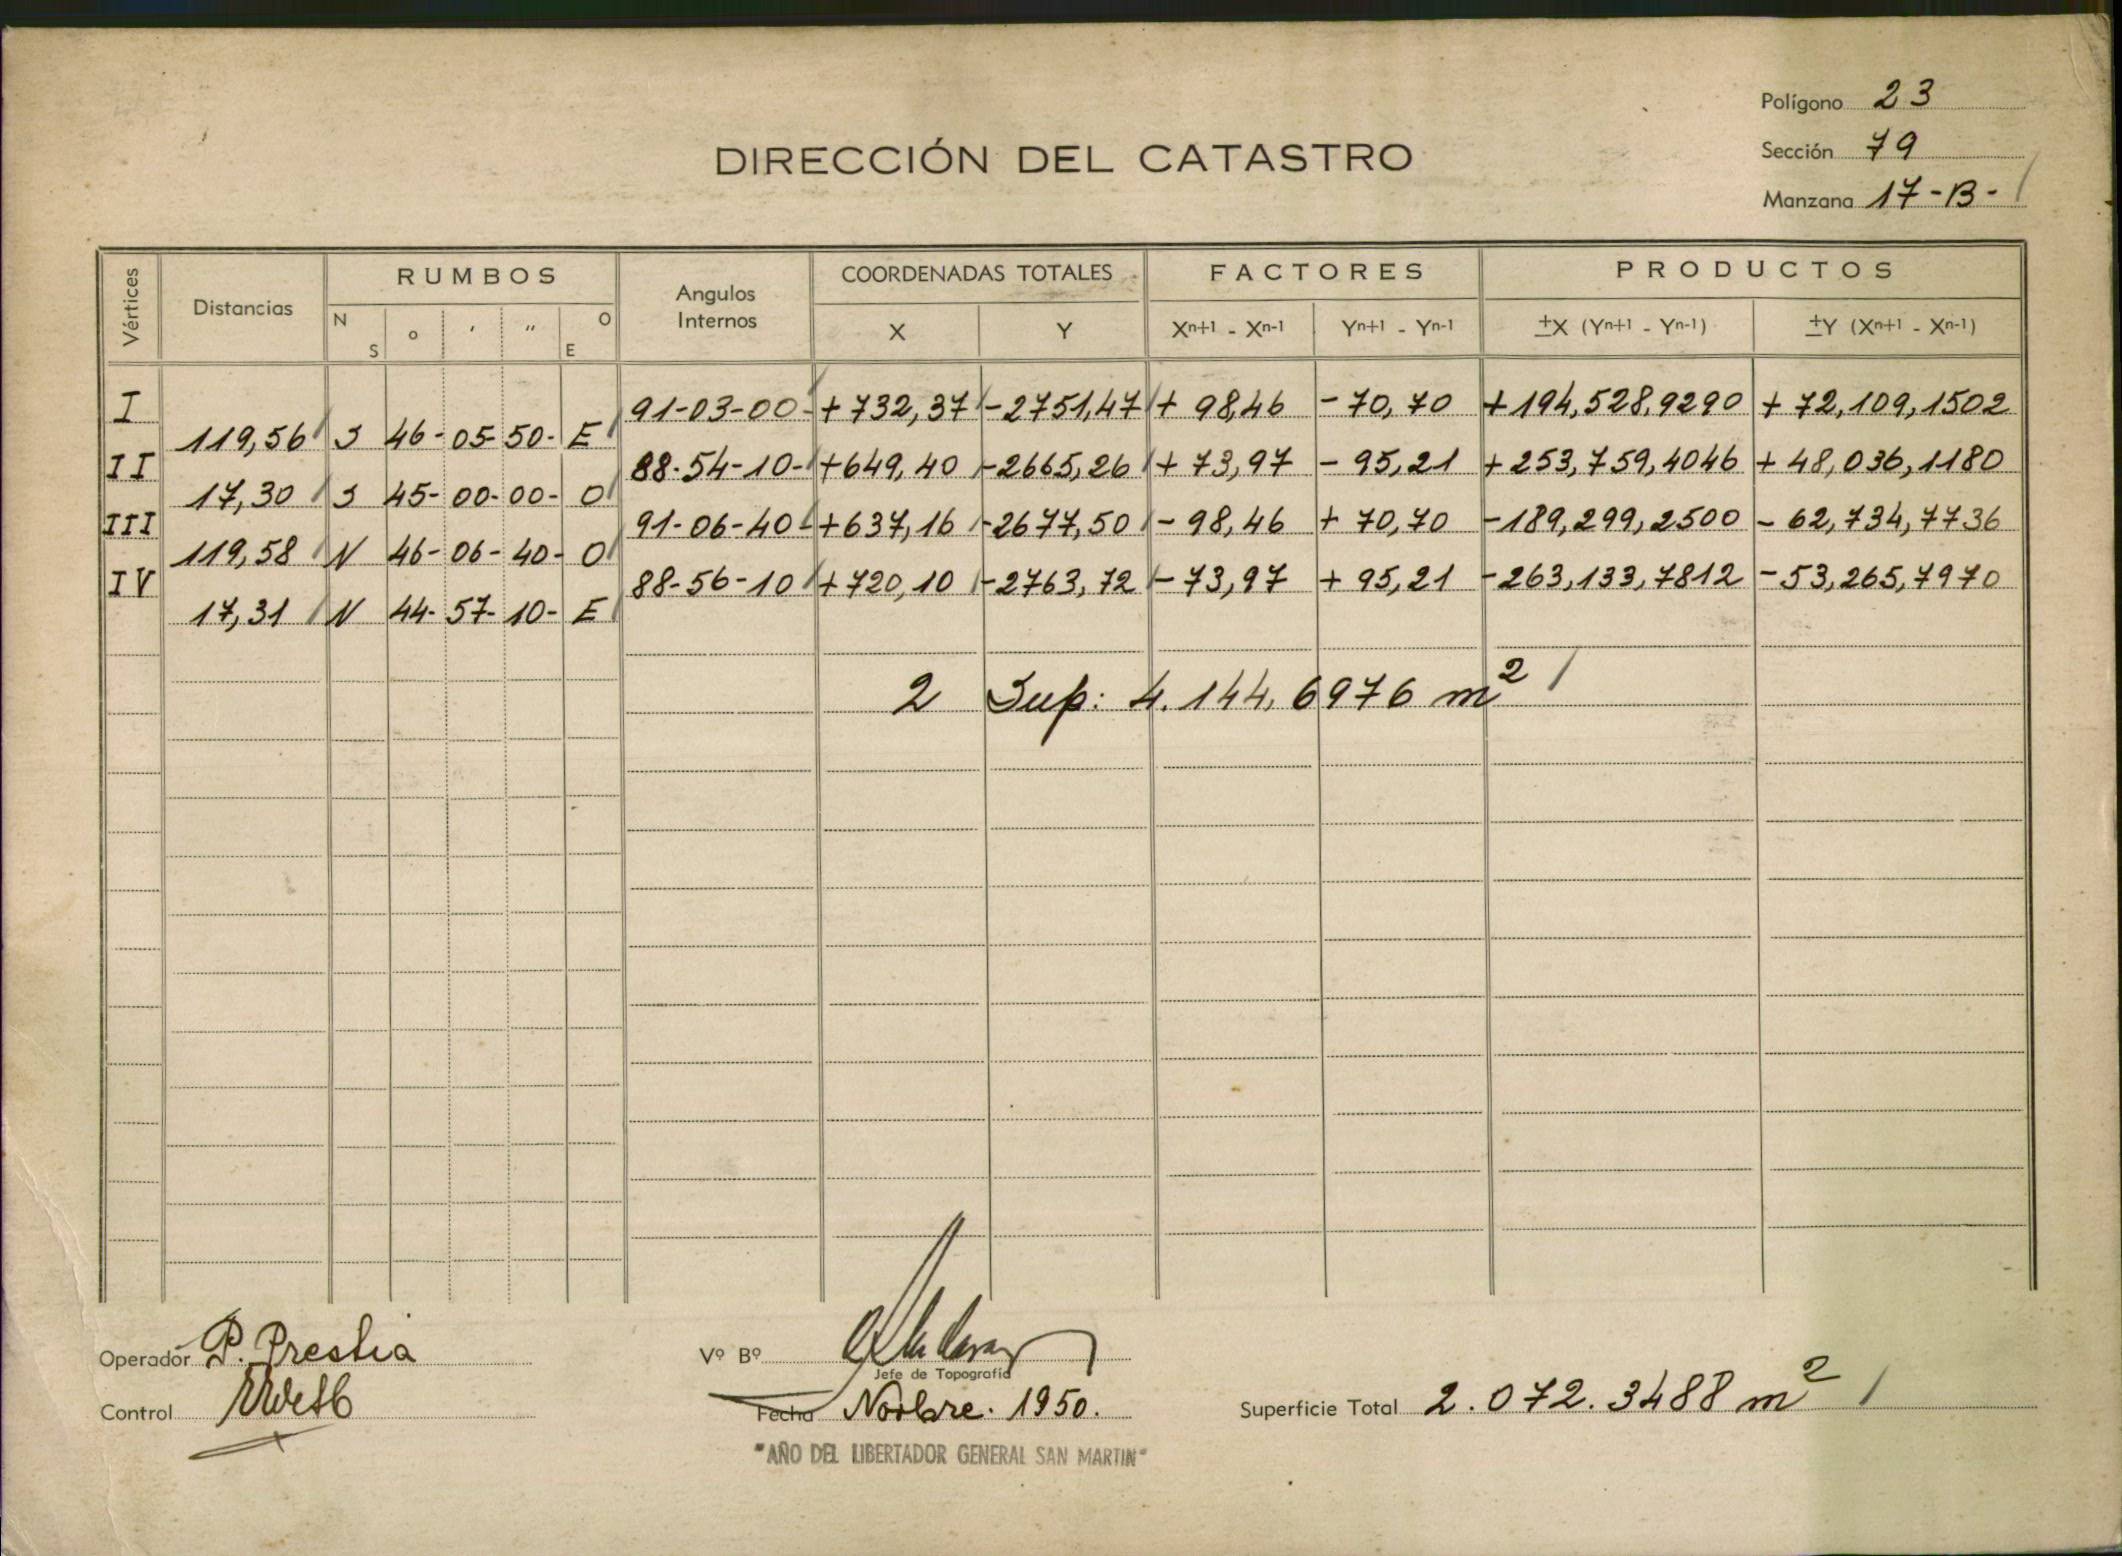 Polígono 23
DIRECCIÓN DEL CATASTRO
Sección 79
Manzana 17-B-
Vértices
Distancias
RUMBOS
N S ° ′ ″ O E
Angulos Internos
COORDENADAS TOTALES
X Y
FACTORES
Xn+1 - Xn-1 Yn+1 - Yn-1
PRODUCTOS
±X (Yn+1 - Yn-1) ±Y (Xn+1 - Xn-1)
I 91-03-00- +732,37 -2751,47 + 98,46 -70,70 +194,528,9290 + 72,109,1502
119,56 S 46- 05- 50- E
II 88-54-10- +649,40 -2665,26 + 73,97 - 95,21 +253,759,4046 + 48,036,1180
17,30 S 45- 00- 00- O
III 91-06-40- +637,16 -2677,50 - 98,46 + 70,70 -189,299,2500 - 62,734,7736
119,58 N 46- 06- 40- O
IV 88-56-10 +720,10 -2763,72 -73,97 + 95,21 -263,133,7812 -53,265,7970
17,31 N 44- 57- 10- E
2 Sup: 4.144,6976 m²
Operador P. Prestia
Vº Bº
Jefe de Topografía
Control
Fecha Novbre. 1950.
Superficie Total 2.072.3488 m²
"AÑO DEL LIBERTADOR GENERAL SAN MARTIN"